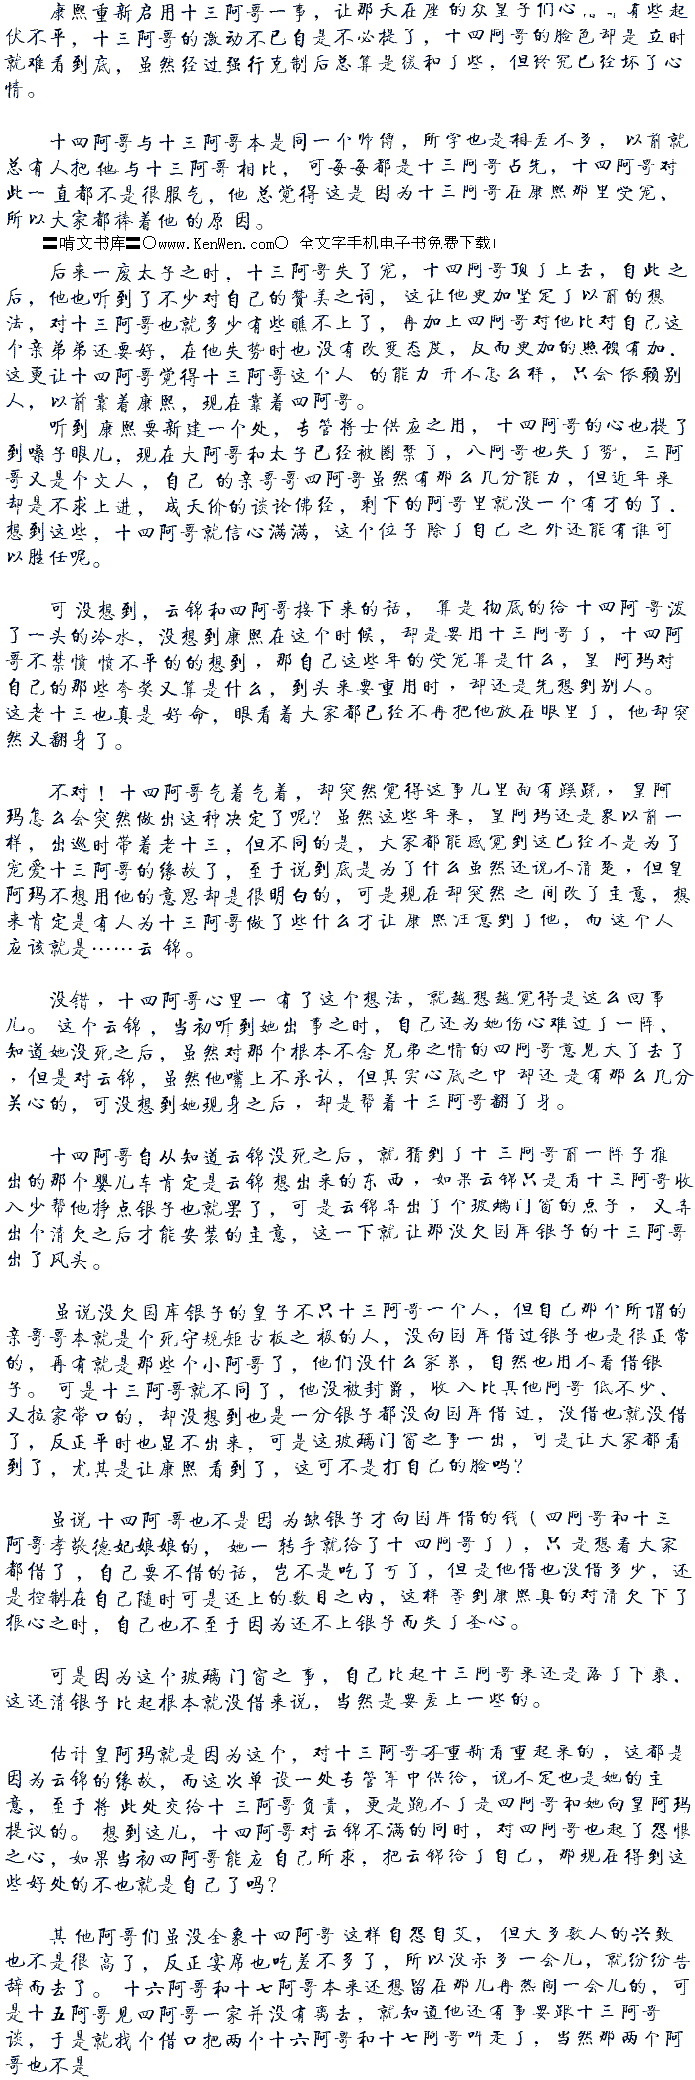 康熙重新启用十三阿哥一事，让那天在座的众皇子们心 有些起
伏不平，十三阿哥的激动不已自是不必提了，十四阿哥的脸色却是立时
就难看到底，虽然经过强行克制后总算是缓和了些，但终究已经坏了心
情。
十四阿哥与十三阿哥本是同一个师傅，所学也是相差不多，以前就
总有人把他与十三阿哥相比，可每每都是十三阿哥占先，十四阿哥对
此一直都不是很服气，他总觉得这是因为十三阿哥在康熙那里受宠，
所以大家都捧着他的原因。
〓啃文书库〓〇www.KenWen.com〇 全文字手机电子书免费下载！
后来一废太子之时，十三阿哥失了宠，十四阿哥顶了上去，自此之
后，他也听到了不少对自己的赞美之词，这让他更加坚定了以前的想
法，对十三阿哥也就多少有些瞧不上了，再加上四阿哥对他比对自己这
个亲弟弟还要好，在他失势时也没有改变态度，反而更加的照顾有加．
这更让十四阿哥觉得十三阿哥这个人 的能力并不怎么样，只会依赖别
人，以前靠着康熙，现在靠着四阿哥。
听到康熙要新建一个处，专管将士供应之用，十四阿哥的心也提了
到嗓子眼儿，现在大阿哥和太子已经被圈禁了，八阿哥也失了势，三阿
哥又是个文人，自己的亲哥哥四阿哥虽然有那么几分能力，但近年来
却是不求上进，成天价的谈论佛经，剩下的阿哥里就没一个有才的了．
想到这些，十四阿哥就信心满满，这个位子除了自己之外还能有谁可
以胜任呢。
可没想到，云锦和四阿哥接下来的话，算是彻底的给十四阿哥泼
了一头的冷水，没想到康熙在这个时候，却是要用十三阿哥了，十四阿
哥不禁愤愤不平的的想到，那自己这些年的受宠算是什么，皇阿玛对
自己的那些夸奖又算是什么，到头来要重用时，却还是先想到别人。
这老十三也真是好命，眼看着大家都已经不再把他放在眼里了，他却突
然又翻身了。
不对！十四阿哥气着气着，却突然觉得这事儿里面有蹊跷，皇阿
玛怎么会突然做出这种决定了呢？虽然这些年来，皇阿玛还是象以前一
样，出巡时带着老十三，但不同的是，大家都能感觉到这已经不是为了
宠爱十三阿哥的缘故了，至于说到底是为了什么虽然还说不清楚，但皇
阿玛不想用他的意思却是很明白的，可是现在却突然之间改了主意，想
来肯定是有人为十三阿哥做了些什么才让康熙注意到了他，而这个人
应该就是……云锦。
没错，十四阿哥心里一有了这个想法，就越想越觉得是这么回事
儿。这个云锦，当初听到她出事之时，自己还为她伤心难过了一阵，
知道她没死之后，虽然对那个根本不念兄弟之情的四阿哥意见大了去了
，但是对云锦，虽然他嘴上不承认，但其实心底之中却还是有那么几分
关心的，可没想到她现身之后，却是帮着十三阿哥翻了身。
十四阿哥自从知道云锦没死之后，就猜到了十三阿哥前一阵子推
出的那个婴儿车肯定是云锦想出来的东西，如果云锦只是看十三阿哥收
入少帮他挣点银子也就罢了，可是云锦弄出了个玻璃门窗的点子，又弄
出个清欠之后才能安装的主意，这一下就让那没欠国库银子的十三阿哥
出了风头。
虽说没欠国库银子的皇子不只十三阿哥一个人，但自己那个所谓的
亲哥哥本就是个死守规矩古板之极的人，没向国库借过银子也是很正常
的，再有就是那些个小阿哥了，他们没什么家累，自然也用不着借银
子。可是十三阿哥就不同了，他没被封爵，收入比其他阿哥低不少，
又拉家带口的，却没想到也是一分银子都没向国库借过，没借也就没借
了，反正平时也显不出来，可是这玻璃门窗之事一出，可是让大家都看
到了，尤其是让康熙看到了，这可不是打自己的脸吗？
虽说十四阿哥也不是因为缺银子才向国库借的钱（四阿哥和十三
阿哥孝敬德妃娘娘的，她一转手就给了十四阿哥了），只是想着大家
都借了，自己要不借的话，岂不是吃了亏了，但是他借也没借多少，还
是控制在自己随时可是还上的数目之内，这样等到康熙真的对清欠下了
狠心之时，自己也不至于因为还不上银子而失了圣心。
可是因为这个玻璃门窗之事，自己比起十三阿哥来还是落了下乘，
这还清银子比起根本就没借来说，当然是要差上一些的。
估计皇阿玛就是因为这个，对十三阿哥才重新看重起来的，这都是
因为云锦的缘故，而这次单设一处专管军中供给，说不定也是她的主
意，至于将此处交给十三阿哥负责，更是跑不了是四阿哥和她向皇阿玛
提议的。想到这儿，十四阿哥对云锦不满的同时，对四阿哥也起了怨恨
之心，如果当初四阿哥能应自己所求，把云锦给了自己，那现在得到这
些好处的不也就是自己了吗？
其他阿哥们虽没全象十四阿哥这样自怨自艾，但大多数人的兴致
也不是很高了，反正宴席也吃差不多了，所以没示多一会儿，就纷纷告
辞而去了。十六阿哥和十七阿哥本来还想留在那儿再热闹一会儿的，可
是十五阿哥见四阿哥一家并没有离去，就知道他还有事要跟十三阿哥
谈，于是就找个借口把两个十六阿哥和十七阿哥叫走了，当然那两个阿
哥也不是